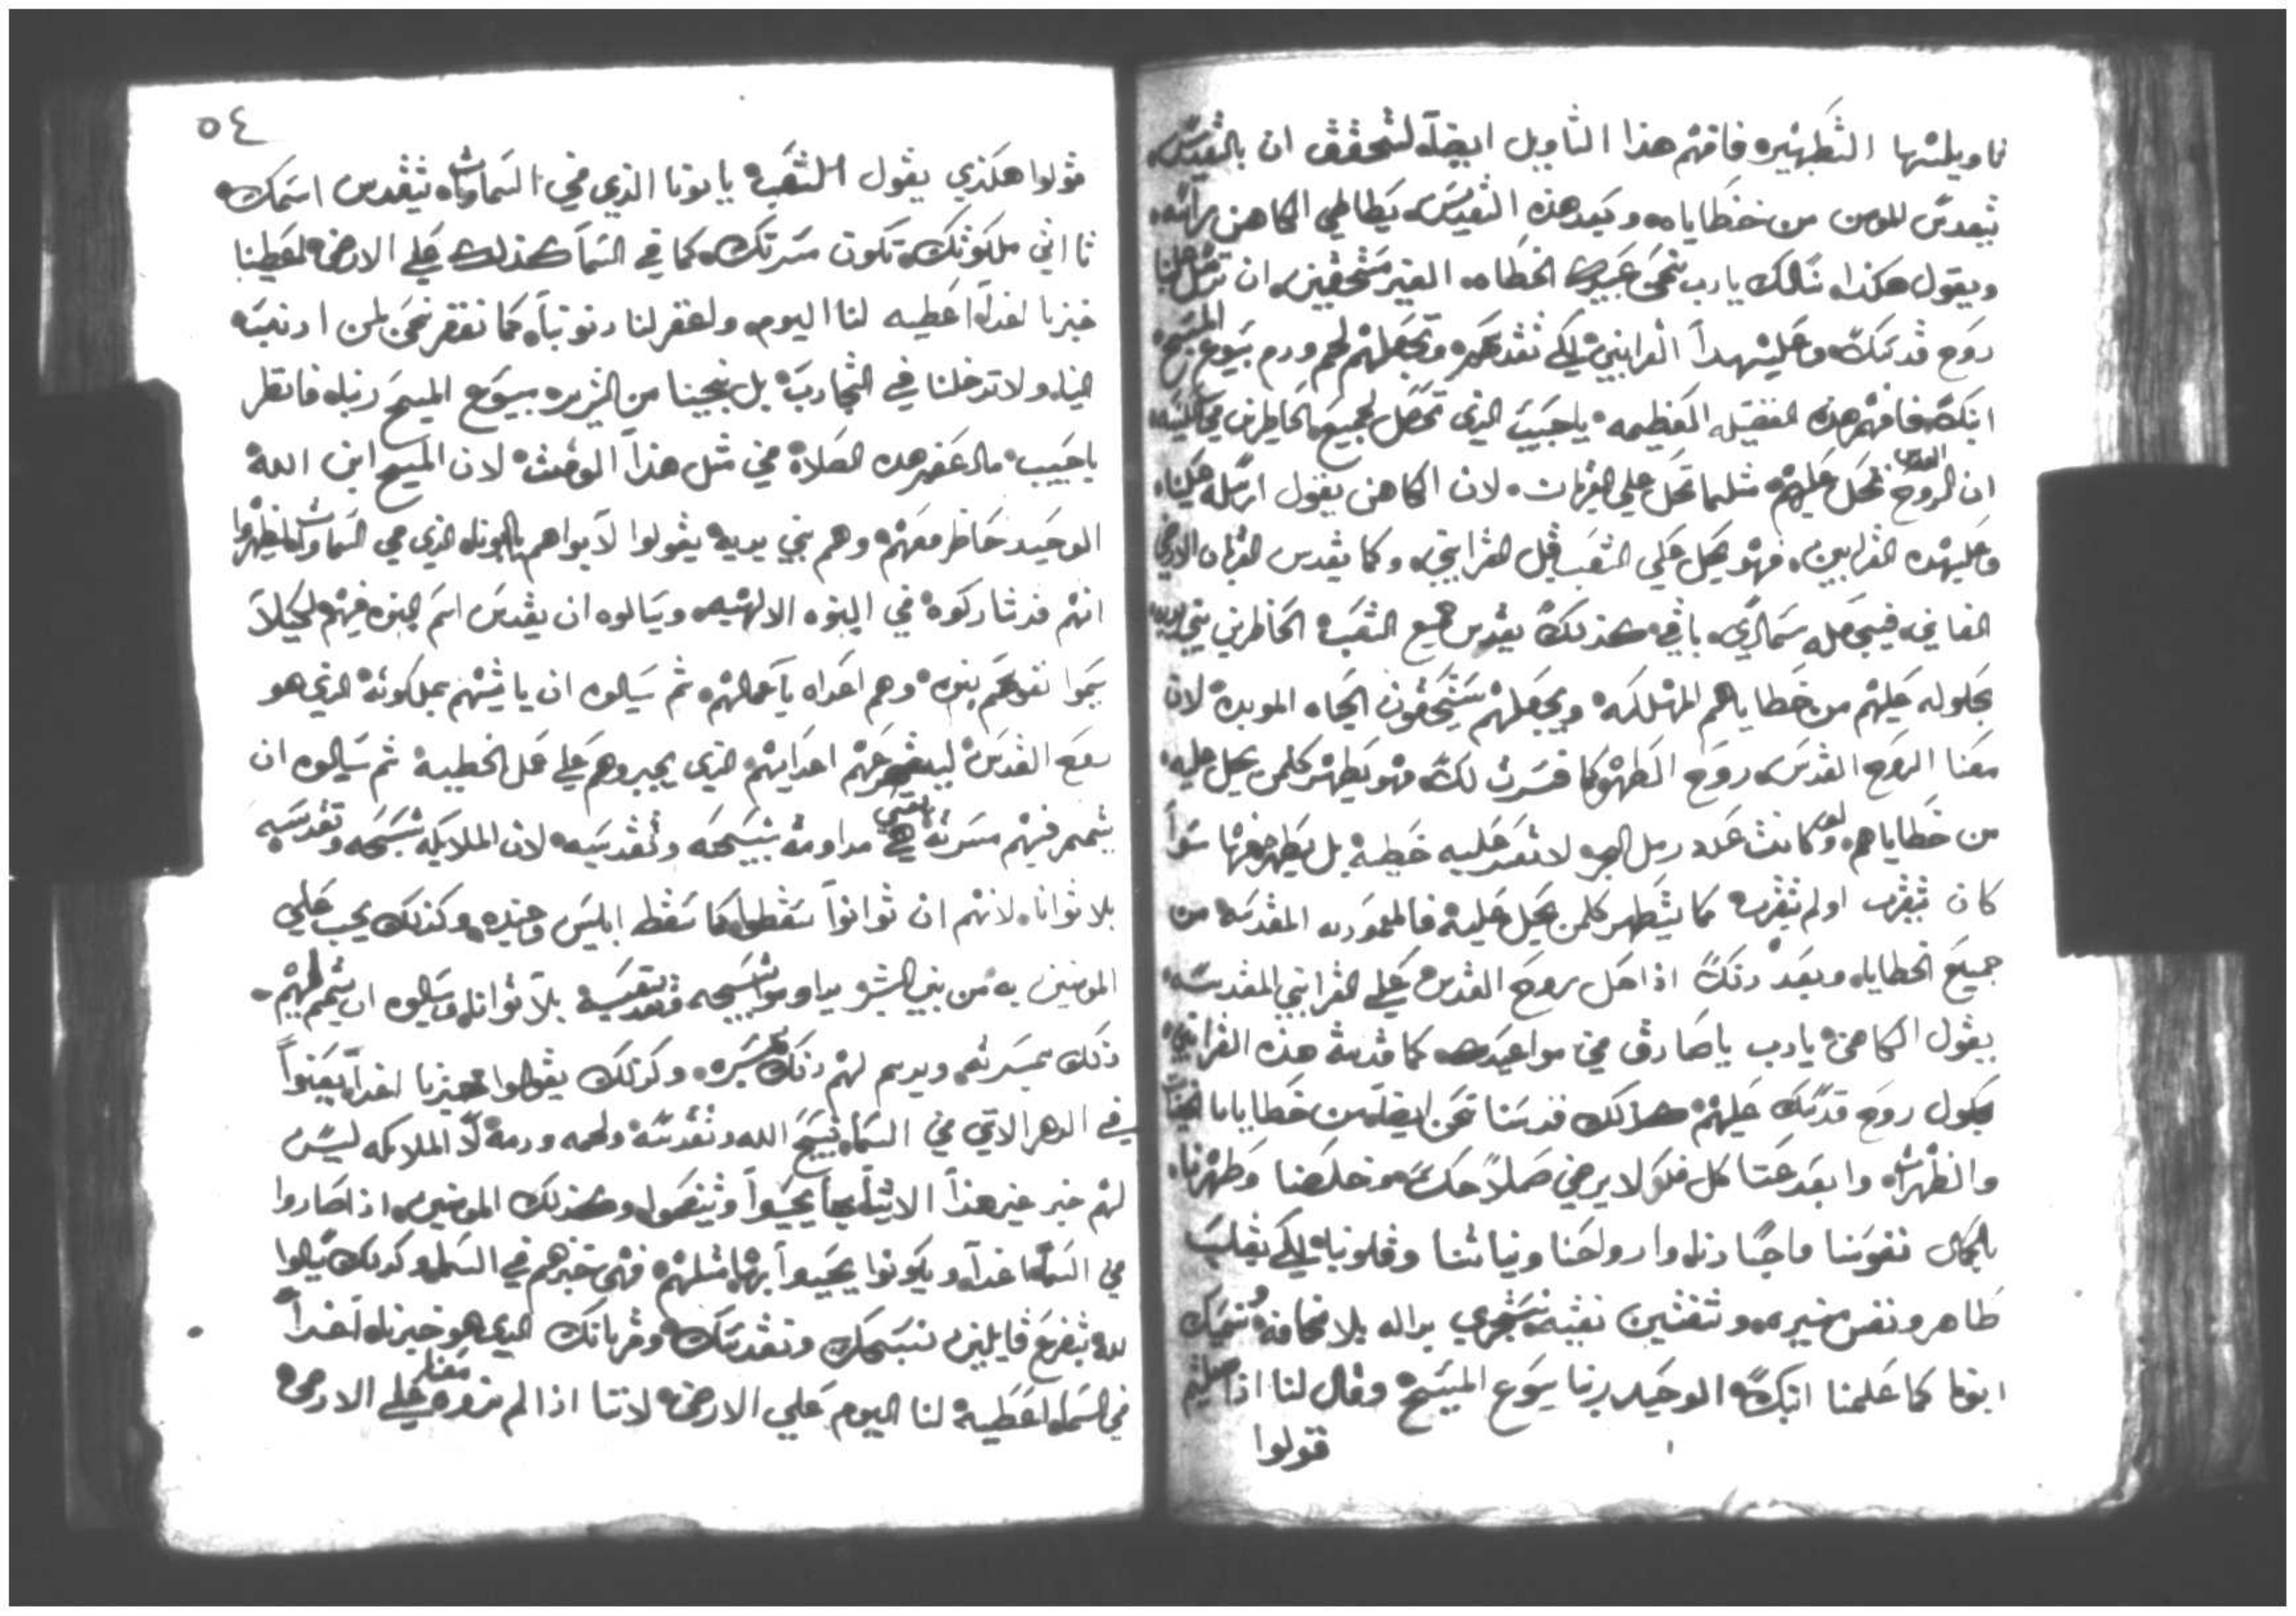 تاويلتها التطهيره فافهم هذا التاويل ايضاً لتحقق ان بالتقديس
يتقدس المومن من خطاياه وبعد هذه التقديس يطاطي الكاهن براسه
ويقول هكذا نسالك يارب نحن عبيدك الخطاه الغير مستحقين ان ترسل علينا
روح قدسك وعلي هدا القرابين لكي تقدسهم وتجعلهم لحم ودم يسوع المسيح
ابنك فافهم هذه الفضيله العظيمه ياحبيب الذي تحصل لجميع الحاضرين في
ان الروح القدس تحل عليهم مثلما تحل علي القربان لان الكاهن يقول ارسله علينا
وعلي هده القرابين فهو يحل علي الشعب قبل القرابين وكما يقدس القربان الارضي
الفاني فيجعله سمائي باقي كذلك يقدس جميع الشعب الحاضرين بين يديه
بحلوله عليهم من خطاياهم المهلكه ويجعلهم يستحقون الحياه الموبده لان
معنا الروح القدس روح الطهر كما فسرت لك فهو يطهر كلمن يحل عليه
من خطاياهم ولو كانت عدد رمل البحر لا تعد عليه خطية بل يطهر منها سوا
كان يتقرب او لم يتقرب كما يتطهر كلمن يحل عليه في المعموديه المقدسه من
جميع الخطايا وبعد ذلك اذا حل روح القدس علي القرابين المقدسه
يقول الكاهن يارب ياصادق في مواعيدك كما قدست هذه القرابين
بحلول روح قدسك عليهم كذلك قدسنا نحن ايضاً من خطايانا الخفيات
والظهرات وابعد عنا كل فكر لا يرضي صلاحك وخلصنا وطهرنا
بالكمال نفوسنا واجسادنا وارواحنا ونياتنا وقلوبنا لكي بقلب
طاهر ونفس منيره ونفسين نقيه نستجري بداله بلا مخافه نسميك
ابونا كما علمنا ابنك الوحيد ربنا يسوع المسيح وقال لنا اذا صليتم
قولوا
٥٤
قولوا هكذي يقول الشعب يا بونا الذي في السماوات يتقدس اسمك
تاتي ملكوتك تكون مسرتك كما في السما كذلك علي الارض اعطينا
خبزنا لغداً اعطيه لنا اليوم واغفر لنا دنوبنا كما نغفر نحن لمن ادنب
الينا ولا تدخلنا في التجارب بل نجينا من الشرير بيسوع المسيح ربنا فانظر
ياحبيب ما اعظم هده الصلاة في مثل هذا الوقت لان المسيح ابن الله
الوحيد حاظر معهم وهم بين يديه يقولوا لابوهم يا ابونا الذي في السماوات ليظهروا
انهم قد شاركوه في البنوه الالهيه ويسالوه ان يقدس اسم البنوه فيهم لكيلا
يسموا نفوسهم بنوه وهم اعداه باعمالهم ثم يسالوه ان ياتيهم بملكوته الذي هو
روح القدس ليبعد عنهم اعدايهم الذي يجبروهم علي عمل الخطيه ثم يسالوه ان
يتمم فيهم مسرته هي مداومة تسبيحه وتقديسه لان الملايكه تسبحه وتقدسه
بلا توانا لانهم ان توانوا سقطوا كما سقط ابليس وجنده وكذلك يجب علي
المومنين به من بني البشر يداوموا تسبيحه وتقديسه بلا توانا ويسالوه ان يتمم لهم
ذلك بمسرته ويديم لهم ذلك وكذلك يقولوا خبزنا لغداً يعنوا
في الدهر الاتي في السما تسبيح الله وتقديسه ولحمه ودمه لان الملايكه ليس
لهم خبز غير هذا الاشيا بها يحيوا ويتنعموا وكذلك المومنين اذا صاروا
في السما غداً ويكونوا يحيوا بها مثلهم فهي خبزهم في السما وكذلك يسالوا
لله بتضرع قايلين تسبيحك وتقديسك وقربانك الذي هو خبزنا لغداً
في السما اعطيه لنا اليوم علي الارض لاننا اذا لم نزوده معنا علي الارض